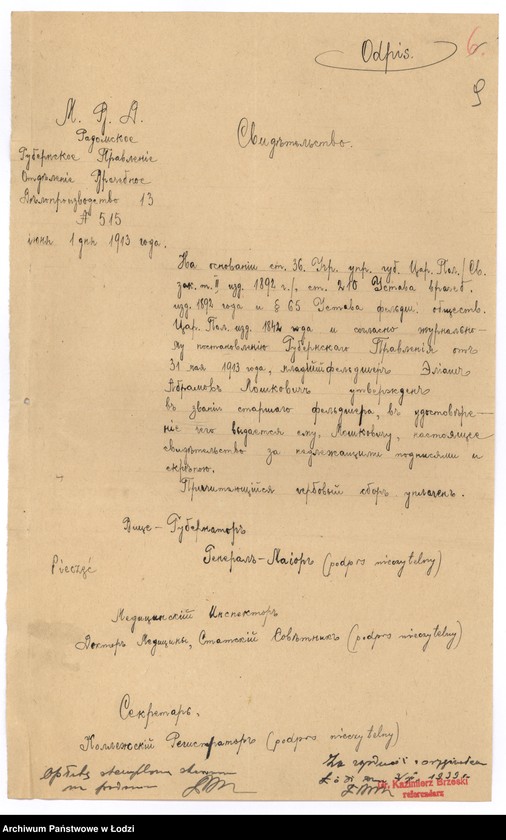 Odpis.
6.
9
М. В. Д.
Радомское
Губернское Правленіе
Отдѣленіе Врачебное
Дѣлопроизводство 13
№ 515
іюня 1 дня 1913 года.
Свидѣтельство.
На основаніи ст. 36. Учр. упр. губ. Цар. Пол. /Св.
зак. т. II изд. 1892 г./, ст. 210 Устава врачеб.
изд. 1892 года и § 65 Устава фельдш. обществ.
Цар. Пол. изд. 1842 года и согласно журнально-
му постановленію Губернскаго Правленія отъ
31 мая 1913 года, младшій фельдшеръ
Абрамовъ Мошковичъ утвержденъ
въ званіи старшаго фельдшера, въ удостовѣре-
ніе чего выдается ему, Мошковичу, настоящее
свидѣтельство за надлежащими подписями и
скрѣпою.
Причитающійся гербовый сборъ уплаченъ.
Вице-Губернаторъ
Генералъ-Маіоръ (podpis nieczytelny)
Pieczęć
Медицинскій Инспекторъ
Докторъ Медицины, Статскій Совѣтникъ (podpis nieczytelny)
Секретарь,
Коллежскій Регистраторъ (podpis nieczytelny)
Za zgodność z oryginałem
Dr. Kazimierz Brzeski
referendarz
Archiwum Państwowe w Łodzi